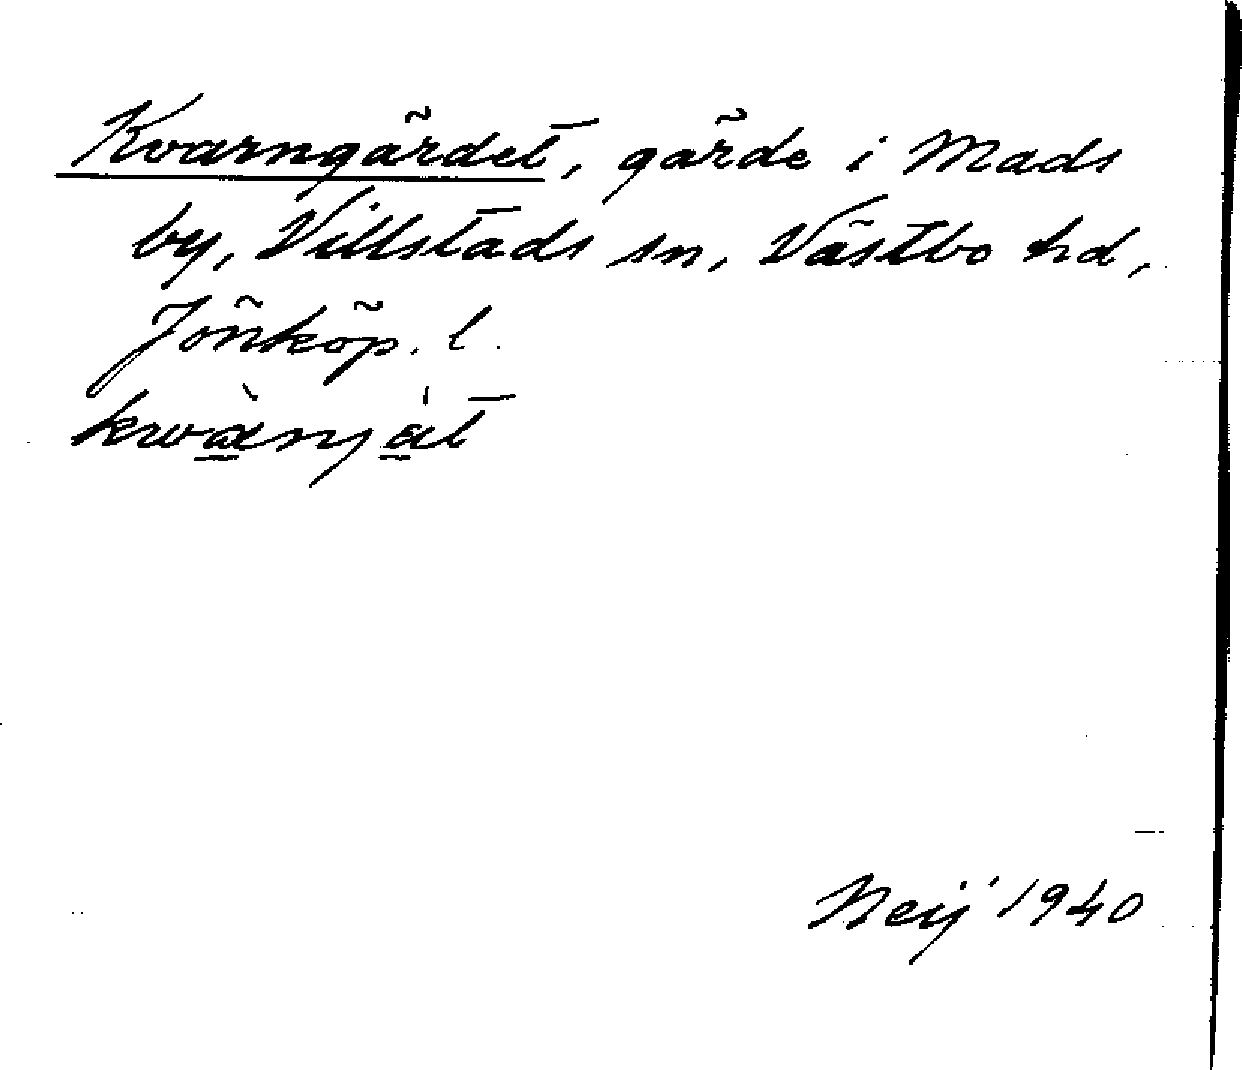 Kvarngärdet, gärde i Mads
by, Villstads sn, Västbo hd,
Jönköp. l.
kwànját
Neij 1940